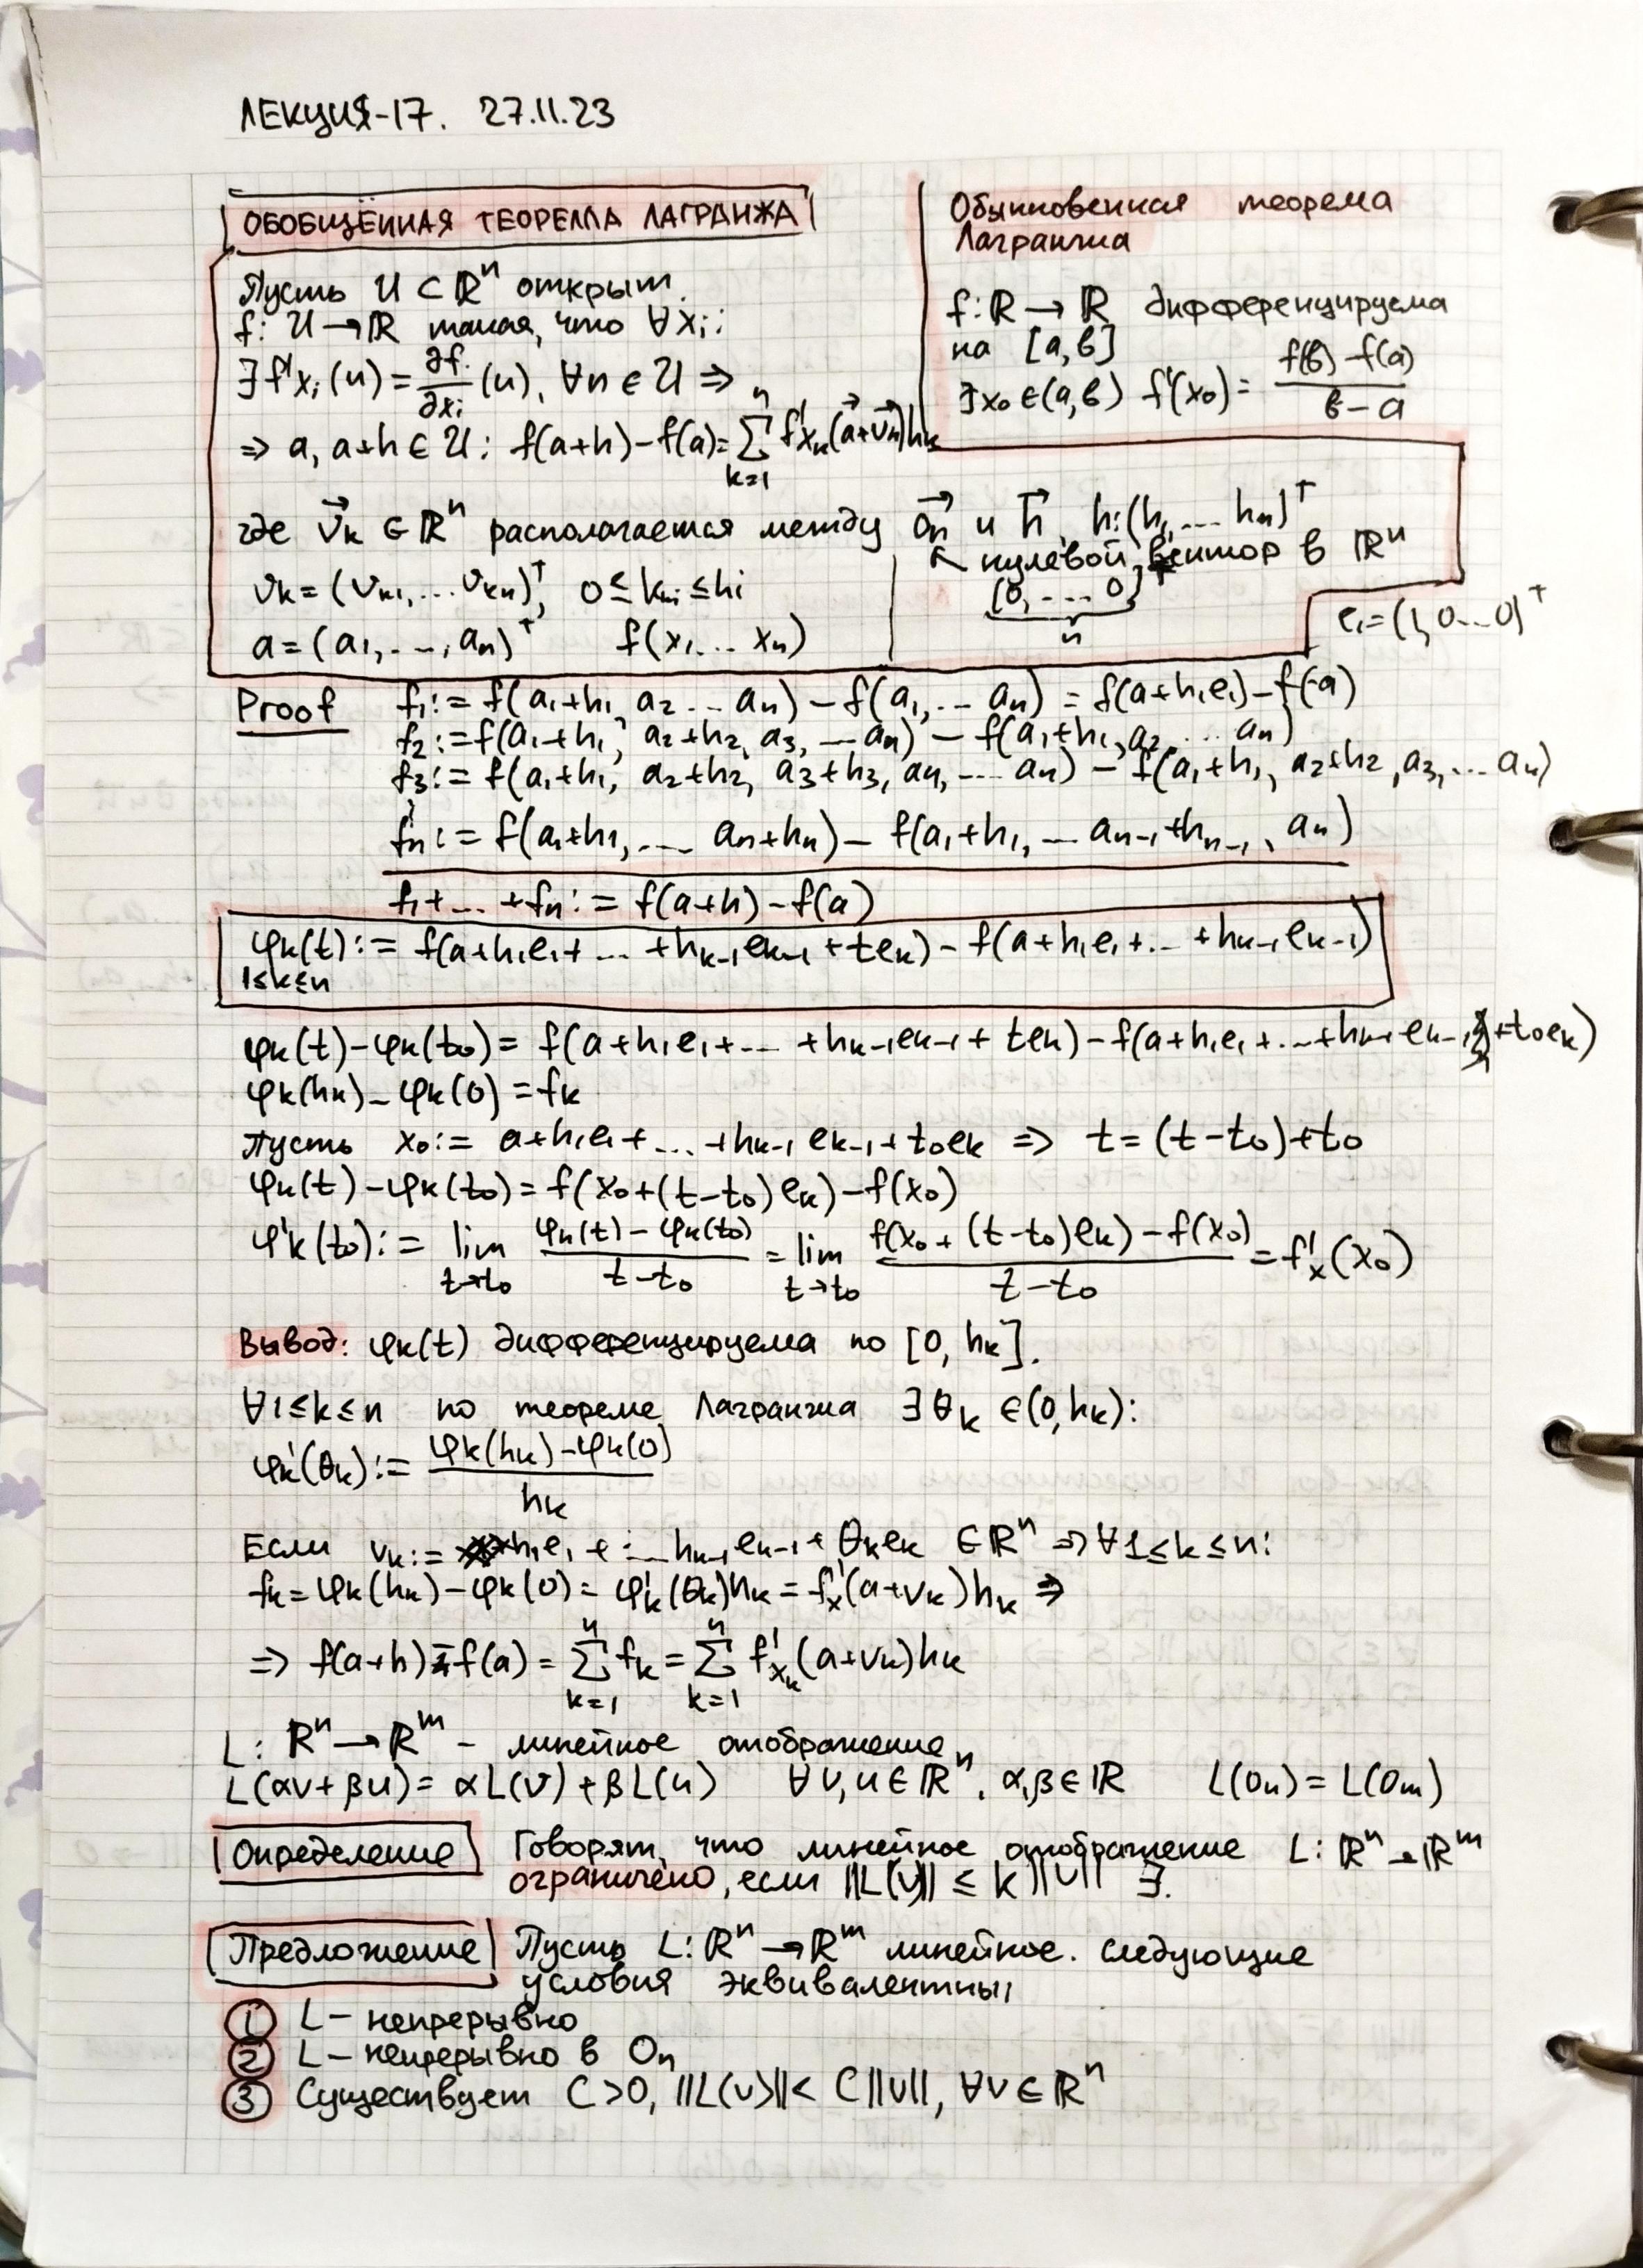 ЛЕКЦИЯ-17. 27.11.23
ОБОБЩЁННАЯ ТЕОРЕМА ЛАГРАНЖА
Пусть U ⊂ ℝⁿ открыт.
f: U → ℝ такая, что ∀xᵢ:
∃ f'xᵢ(u) = ∂f/∂xᵢ (u), ∀u ∈ U ⇒
⇒ a, a+h ∈ U: f(a+h)-f(a) = ∑ₖ₌₁ⁿ f'xₖ(a⃗+v⃗ₖ)hₖ
Обыкновенная теорема
Лагранжа
f: ℝ → ℝ дифференцируема
на [a, b]
∃x₀ ∈ (a, b) f'(x₀) = (f(b) - f(a))/(b - a)
где v⃗ₖ ∈ ℝⁿ располагается между 0⃗ₙ и h⃗, h:(h₁, ... hₙ)ᵀ
↖ нулевой вектор в ℝⁿ
(0, ... 0)ᵀ
n
vₖ = (vₖ₁, ... vₖₙ)ᵀ, 0 ≤ kₖᵢ ≤ hᵢ
a = (a₁, ..., aₙ)ᵀ f(x₁ ... xₙ)
e₁ = (1, 0...0)ᵀ
Proof f₁ := f(a₁+h₁, a₂ ... aₙ) - f(a₁, ... aₙ) = f(a+h₁e₁) - f(a)
f₂ := f(a₁+h₁, a₂+h₂, a₃, ... aₙ) - f(a₁+h₁, a₂, ... aₙ)
f₃ := f(a₁+h₁, a₂+h₂, a₃+h₃, a₄, ... aₙ) - f(a₁+h₁, a₂+h₂, a₃, ... aₙ)
fₙ := f(a₁+h₁, ... aₙ+hₙ) - f(a₁+h₁, ... aₙ₋₁+hₙ₋₁, aₙ)
f₁+ ... +fₙ := f(a+h) - f(a)
φₖ(t) := f(a+h₁e₁+ ... +hₖ₋₁eₖ₋₁+teₖ) - f(a+h₁e₁+ ... +hₖ₋₁eₖ₋₁)
1≤k≤n
φₖ(t)-φₖ(t₀) = f(a+h₁e₁+ ... +hₖ₋₁eₖ₋₁+teₖ) - f(a+h₁e₁+ ... +hₖ₋₁eₖ₋₁+t₀eₖ)
φₖ(hₖ) - φₖ(0) = fₖ
Пусть x₀ := a+h₁e₁+ ... +hₖ₋₁eₖ₋₁+t₀eₖ ⇒ t = (t-t₀)+t₀
φₖ(t)-φₖ(t₀) = f(x₀+(t-t₀)eₖ) - f(x₀)
φ'ₖ(t₀) := lim t→t₀ (φₖ(t) - φₖ(t₀))/(t-t₀) = lim t→t₀ (f(x₀+(t-t₀)eₖ) - f(x₀))/(t-t₀) = f'ₓ(x₀)
Вывод: φₖ(t) дифференцируема по [0, hₖ].
∀1≤k≤n по теореме Лагранжа ∃θₖ ∈ (0, hₖ):
φₖ'(θₖ) := (φₖ(hₖ) - φₖ(0))/hₖ
Если vₖ := h₁e₁ + ... hₖ₋₁eₖ₋₁ + θₖeₖ ∈ ℝⁿ ⇒ ∀1≤k≤n:
fₖ = φₖ(hₖ) - φₖ(0) = φ'ₖ(θₖ)hₖ = f'ₓ(a+vₖ)hₖ ⇒
⇒ f(a+h) - f(a) = ∑ₖ₌₁ⁿ fₖ = ∑ₖ₌₁ⁿ f'xₖ(a+vₖ)hₖ
L: ℝⁿ → ℝᵐ - линейное отображение
L(αv+βu) = αL(v)+βL(u) ∀v, u ∈ ℝⁿ, α, β ∈ ℝ L(0ₙ) = L(0ₘ)
Определение Говорят, что линейное отображение L: ℝⁿ → ℝᵐ
ограничено, если ||L(v)|| ≤ k||v|| ∃.
Предложение Пусть L: ℝⁿ → ℝᵐ линейное. следующие
условия эквивалентны
① L - непрерывно
② L - непрерывно в 0ₙ
③ Существует C>0, ||L(v)|| < C||v||, ∀v ∈ ℝⁿ